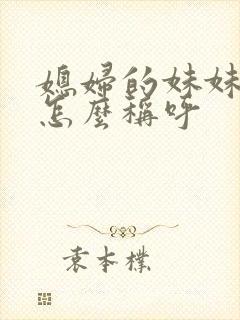 媳婦的妹妹
怎麼稱呼
袁本樸